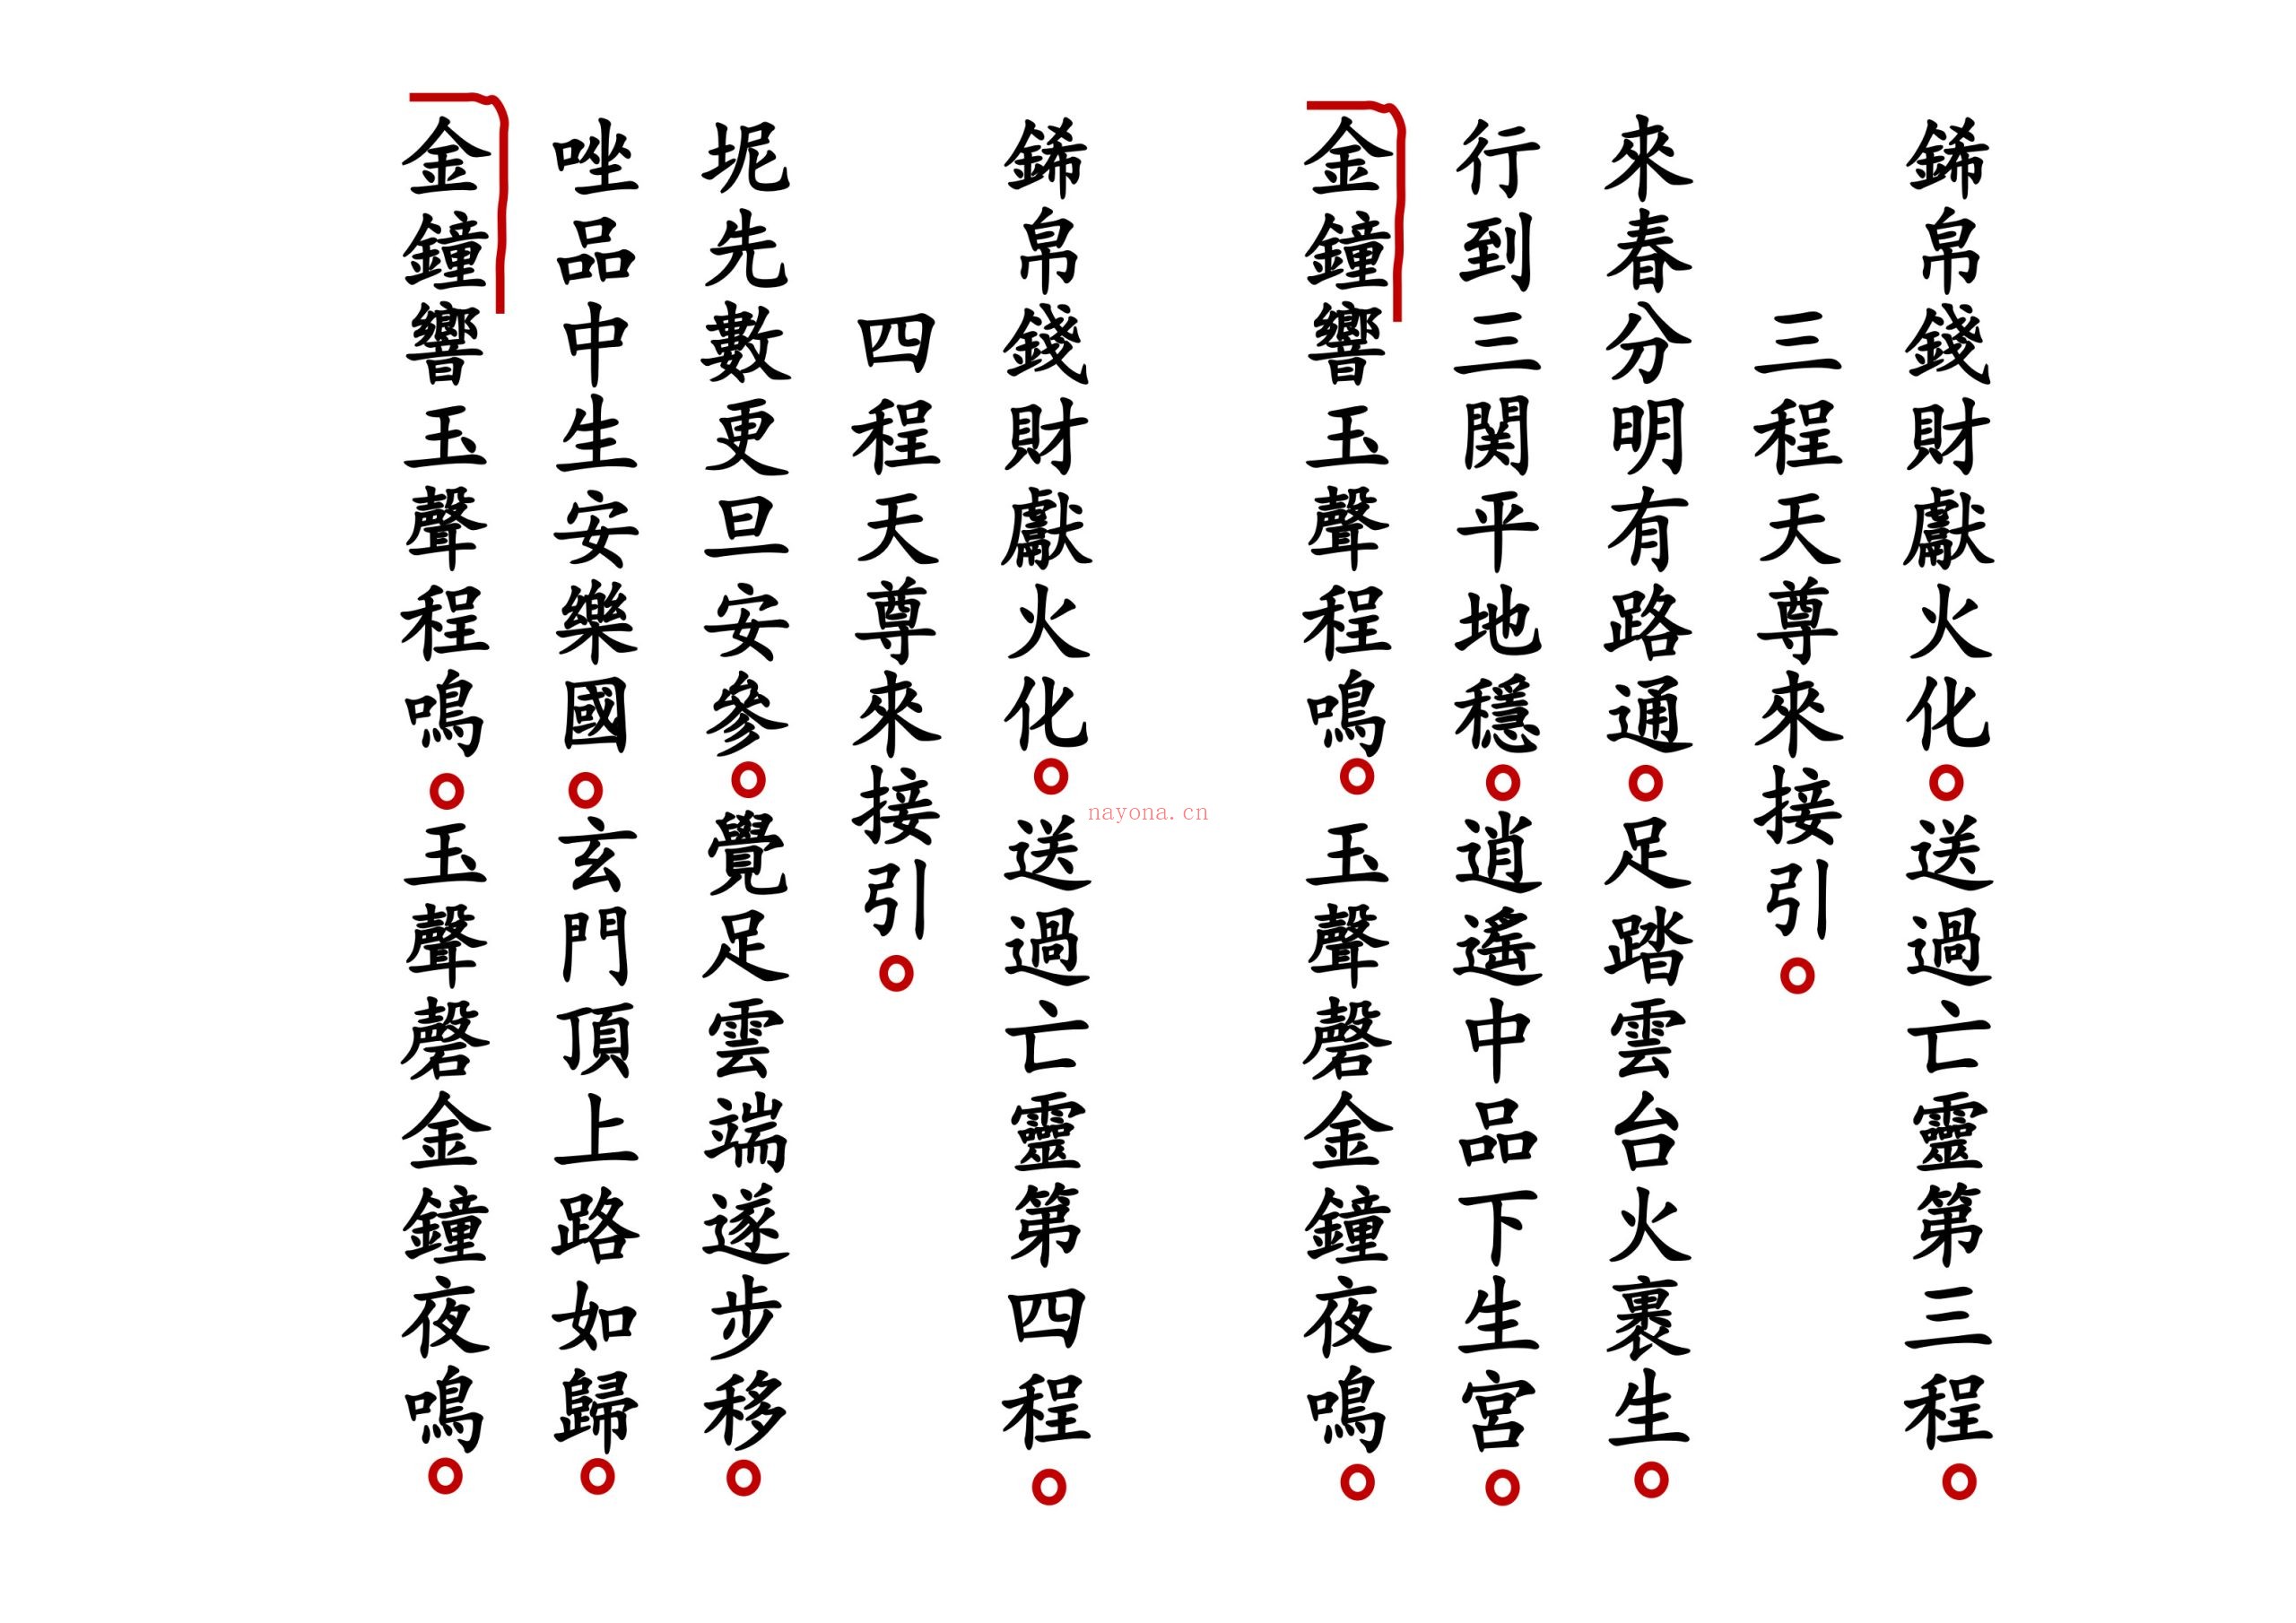 錫帛錢財獻火化。送過亡靈第三程。
三程天尊來接引。
來春分明有路通。足踏雲台火裏生。
行到三関平地穩。逍遙中品下生宮。
金鐘響玉聲程鳴。玉聲磬金鐘夜鳴。
錫帛錢財獻火化。送過亡靈第四程。
四程天尊來接引。
坭先數更旦安參。覺足雲端遂步移。
唑品中生安樂國。玄門頂上路如歸。
金鐘響玉聲程鳴。玉聲磬金鐘夜鳴。
nayona.cn